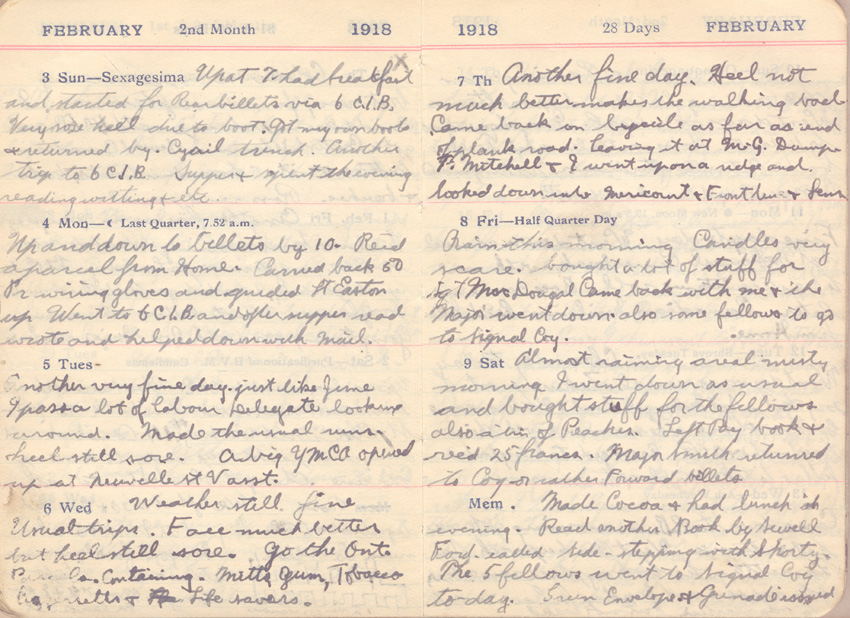 FEBRUARY 2nd Month 1918
3 Sun—Sexagesima Up at 7. had breakfast
and started for Rear billets via 6 C.I.B.
Very sore heel due to boot. Got my own boots
& returned by. Cyail trench. Another
trip to 6 C.I.B. Supper & spent the evening
reading writting & etc.
4 Mon—☾ Last Quarter, 7.52 a.m.
Up and down to billets by 10. Recd
a parcel from Home. Carried back 50
Pr wiring gloves and guided Lt Easton
up. Went to 6 C.I.B. and after supper read
wrote and helped down with mail.
5 Tues—
Another very fine day. just like June
I pass a lot of Labour Delegate looking
around. Made the usual runs.
heel still sore. A big YMCA opened
up at Neuville St Vasst.
6 Wed. Weather still fine
Usual trips. Face much better
but heel still sore. Go the Ont.
Containing. Mitts, Gum, Tobacco
& Life savers.
1918 28 Days FEBRUARY
7 Th Another fine day. Heel not
much better makes the walking bad
Came back on bycicle as far as end
of plank road. Leaving it at M.G. Dump.
P. Mitchell & I went upon a ridge and.
looked down into Mericourt & Front line & Lens
8 Fri—Half Quarter Day
Rain this morning Candles very
scarce. bought a lot of stuff for
Sgt MacDougal Came back with me & the
Major went down also some fellows to go
to Signal Coy.
9 Sat Almost raining a real misty
morning I went down as usual
and bought stuff for the fellows
also a tin of Peaches. Left Pay book &
rec'd 25 francs. Major Smith returned
to Coy or rather Forward billets
Mem. Made Cocoa & had lunch in
evening. Read another Book by Sewell
Ford called Side-stepping with Shorty.
The 5 fellows went to Signal Coy
to day. Green Envelope & Grenade issued